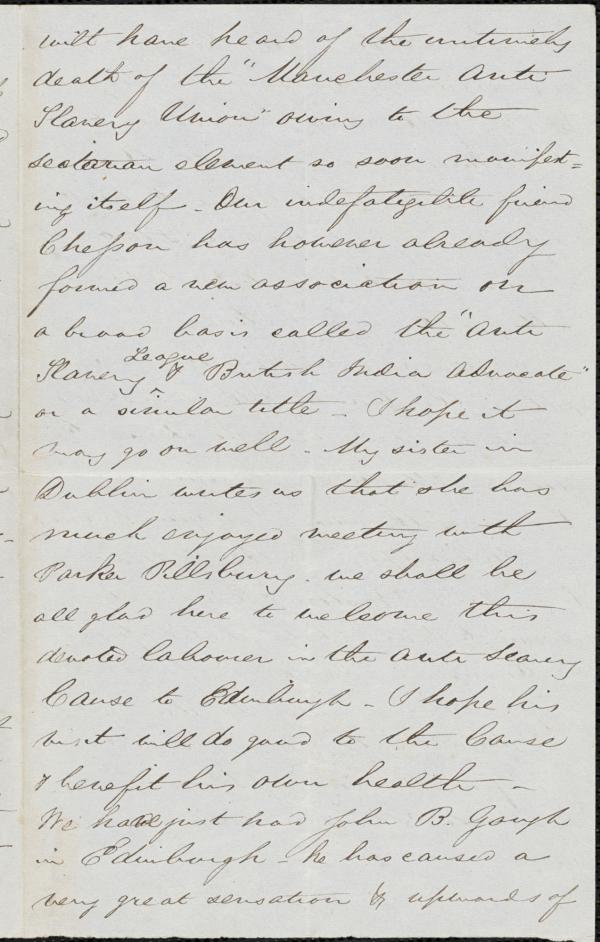 will have heard of the untimely
death of the "Manchester Anti
Slavery Union" owing to the
sectarian element so soon manifest=
ing itself - Our indefatigible friend
Chesson has however already
formed a new association on
a broad basis called the "Anti
Slavery League & British India Advocate"
or a similar title - I hope it
may go on well - My sister in
Dublin writes us that she has
much enjoyed meeting with
Parker Pillsbury. we shall be
all glad here to welcome this
devoted labourer in the Anti Slavery
Cause to Edinburgh - I hope his
visit will do good to the Cause
& benefit his own health -
We have just had John B. Gough
in Edinburgh - he has caused a
very great sensation & upwards of